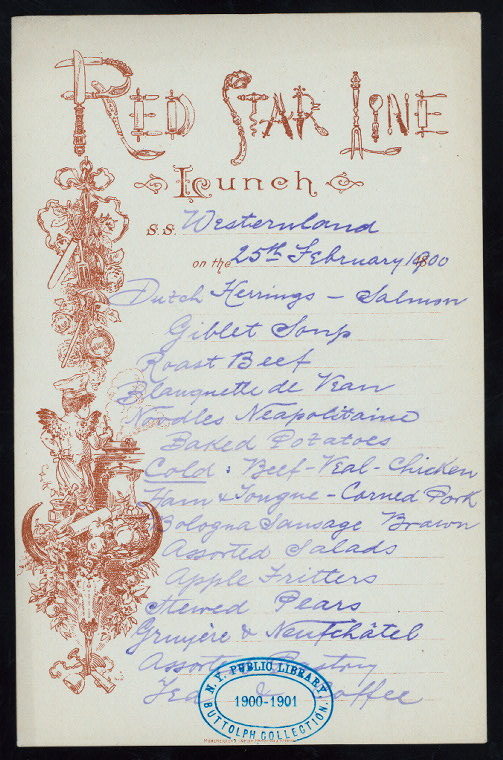 RED STAR LINE
Lunch
S.S. Westernland
on the 25th February 1900
Dutch Herrings - Salmon
Giblet Soup
Roast Beef
Blanquette de Veau
Noodles Neapolitaine
Baked Potatoes
Cold: Beef - Veal - Chicken
Ham & Tongue - Corned Pork
Bologna Sausage Brawn
Assorted Salads
Apple Fritters
Stewed Pears
Gruyère & Neufchâtel
Assorted Pastry
Tea & Coffee
N.Y. PUBLIC LIBRARY,
1900-1901
BUTTOLPH COLLECTION.